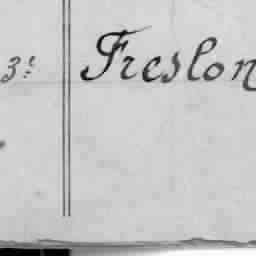 3: Freslon